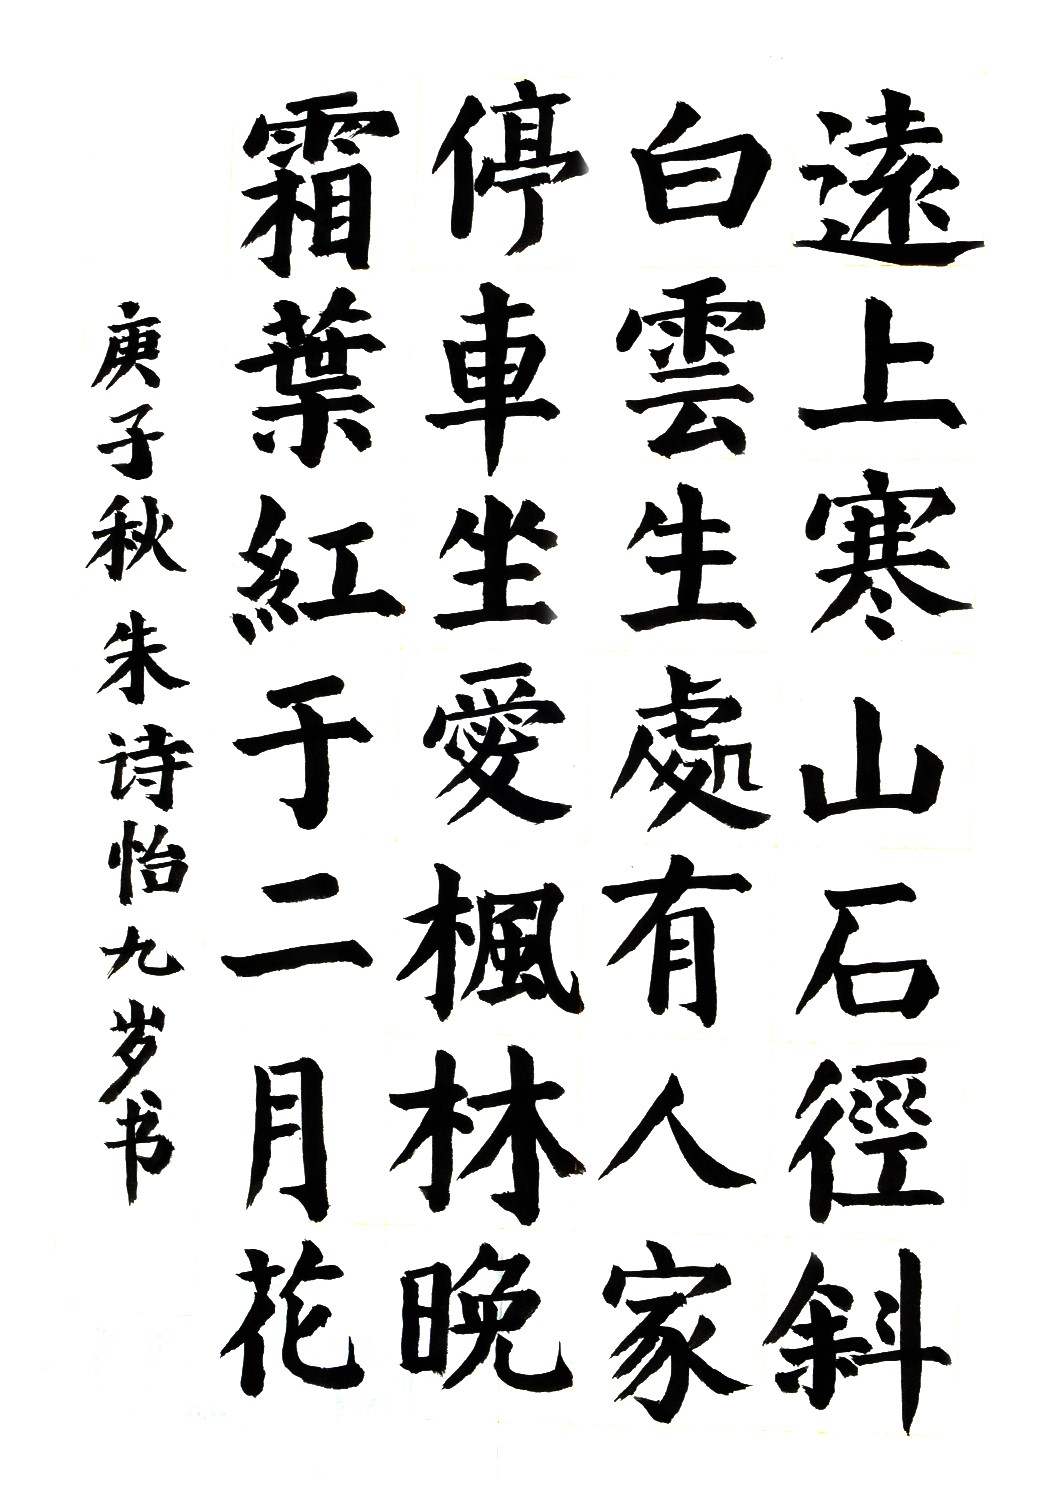 遠上寒山石徑斜
白雲生處有人家
停車坐愛楓林晚
霜葉紅于二月花
庚子秋 朱诗怡九岁书